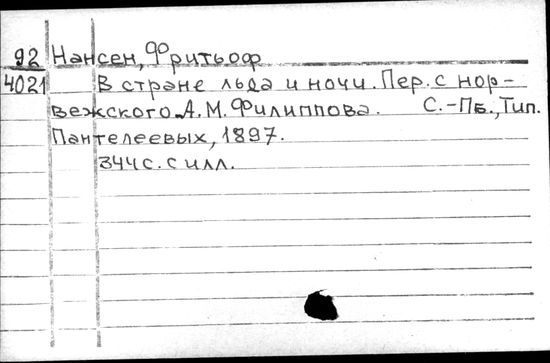 92 Нансен, Фритьоф
4021 В стране льда и ночи. Пер. с нор-
вежского А.М. Филиппова. С.-Пб., Тип.
Пантелеевых, 1897.
344 с. с илл.